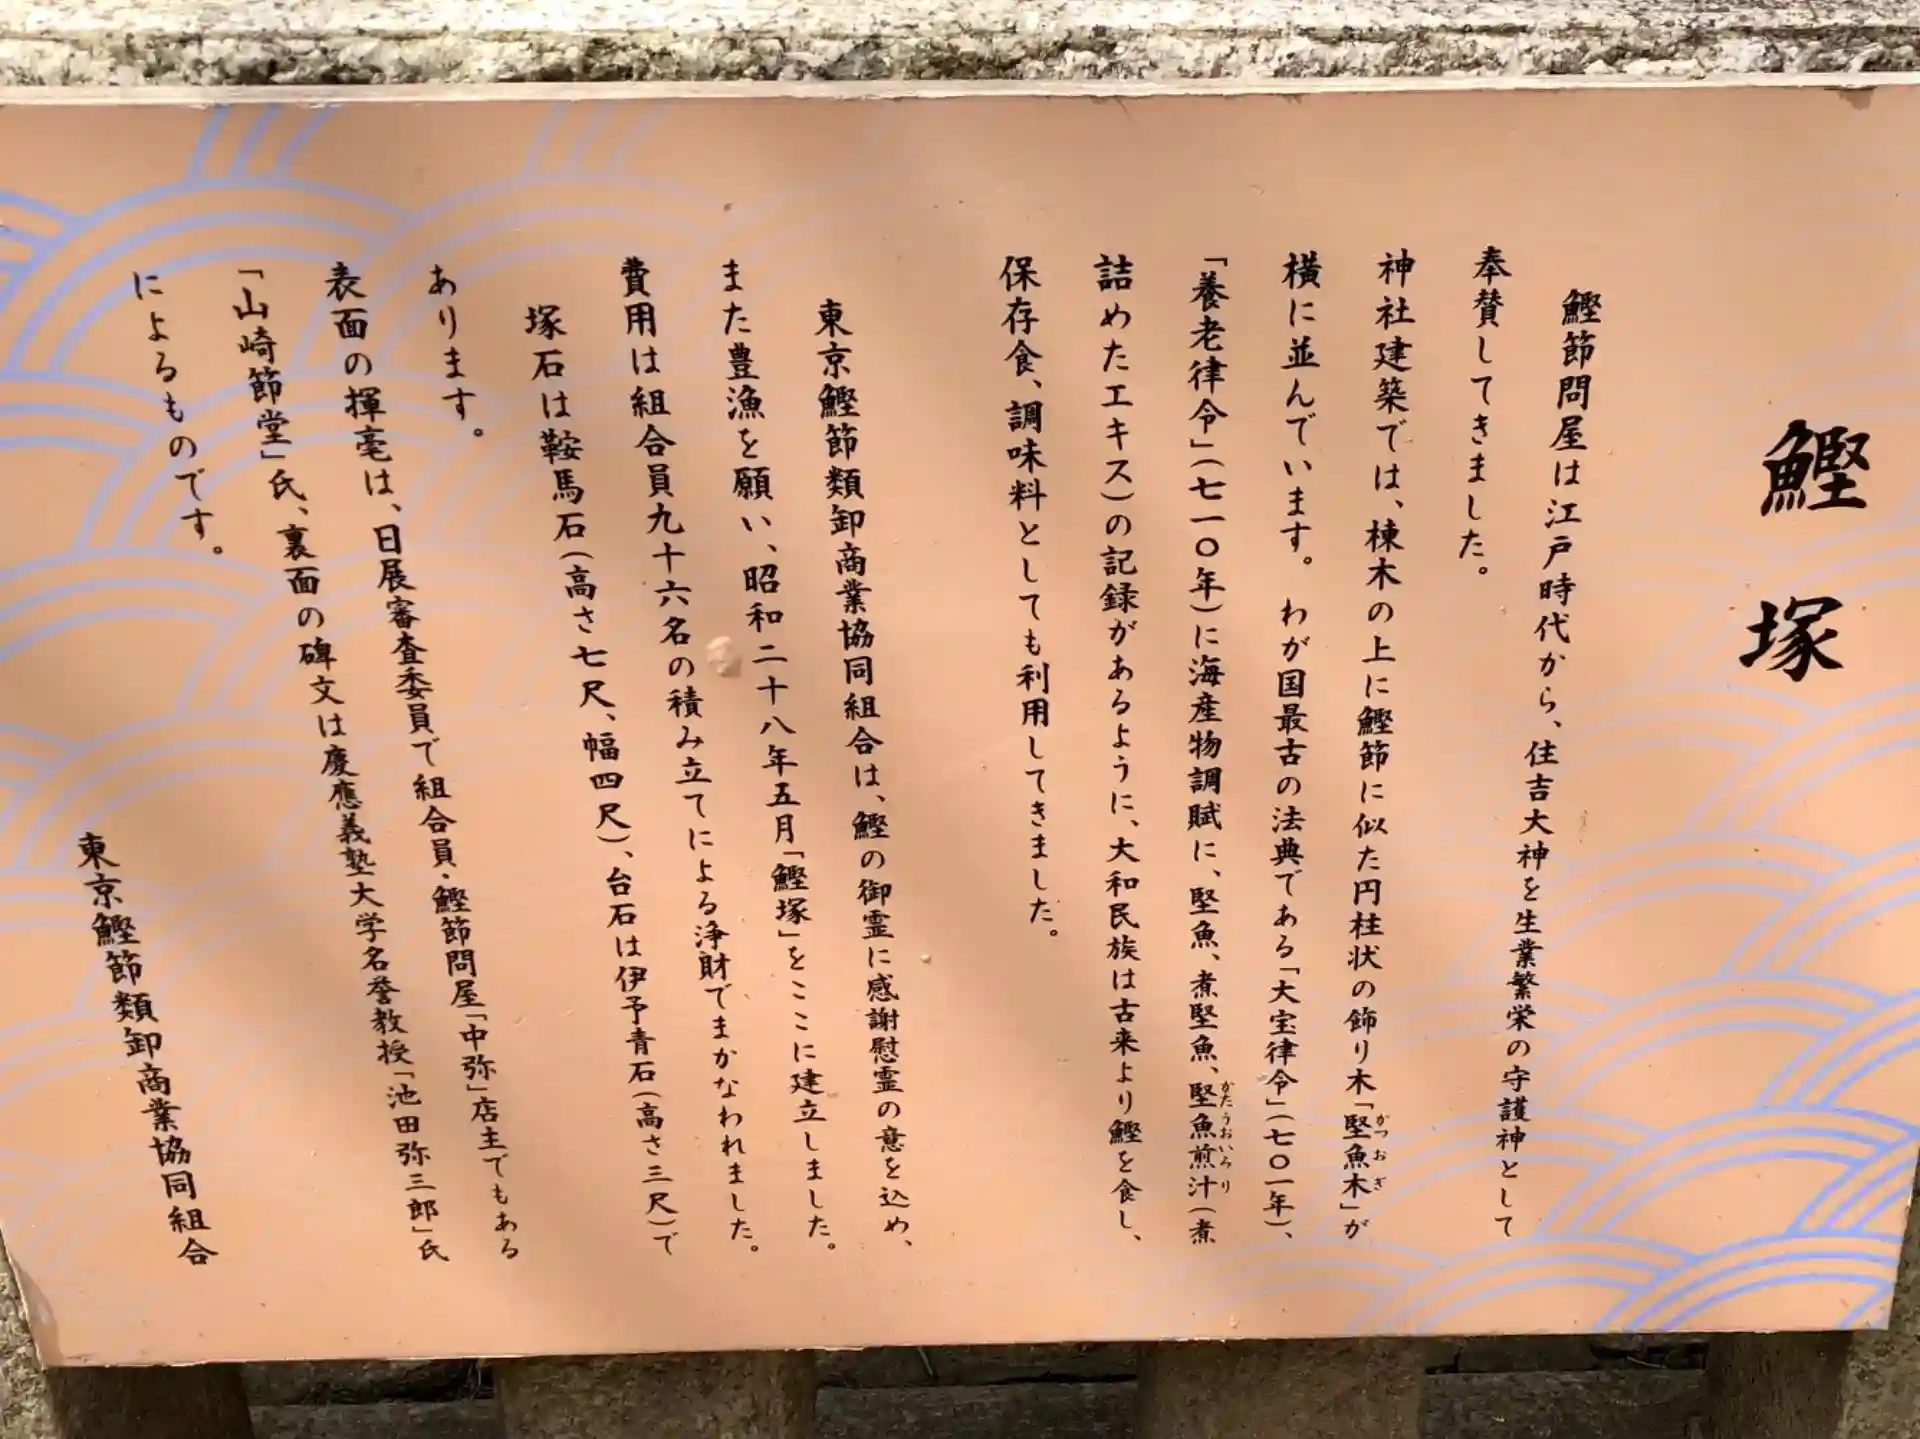 鰹塚
鰹節問屋は江戸時代から、住吉大神を生業繁栄の守護神として
奉賛してきました。
神社建築では、棟木の上に鰹節に似た円柱状の飾り木「堅魚木」が
かつおぎ
横に並んでいます。わが国最古の法典である「大宝律令」(七〇一年)、
「養老律令」(七一〇年)に海産物調賦に、堅魚、煮堅魚、堅魚煎汁(煮
かたうおいろり
詰めたエキス)の記録があるように、大和民族は古来より鰹を食し、
保存食、調味料としても利用してきました。
東京鰹節類卸商業協同組合は、鰹の御霊に感謝慰霊の意を込め、
また豊漁を願い、昭和二十八年五月「鰹塚」をここに建立しました。
費用は組合員九十六名の積み立てによる浄財でまかなわれました。
塚石は鞍馬石(高さ七尺、幅四尺)、台石は伊予青石(高さ三尺)で
あります。
表面の揮毫は、日展審査委員で組合員・鰹節問屋「中弥」店主でもある
「山崎節堂」氏、裏面の碑文は慶應義塾大学名誉教授「池田弥三郎」氏
によるものです。
東京鰹節類卸商業協同組合